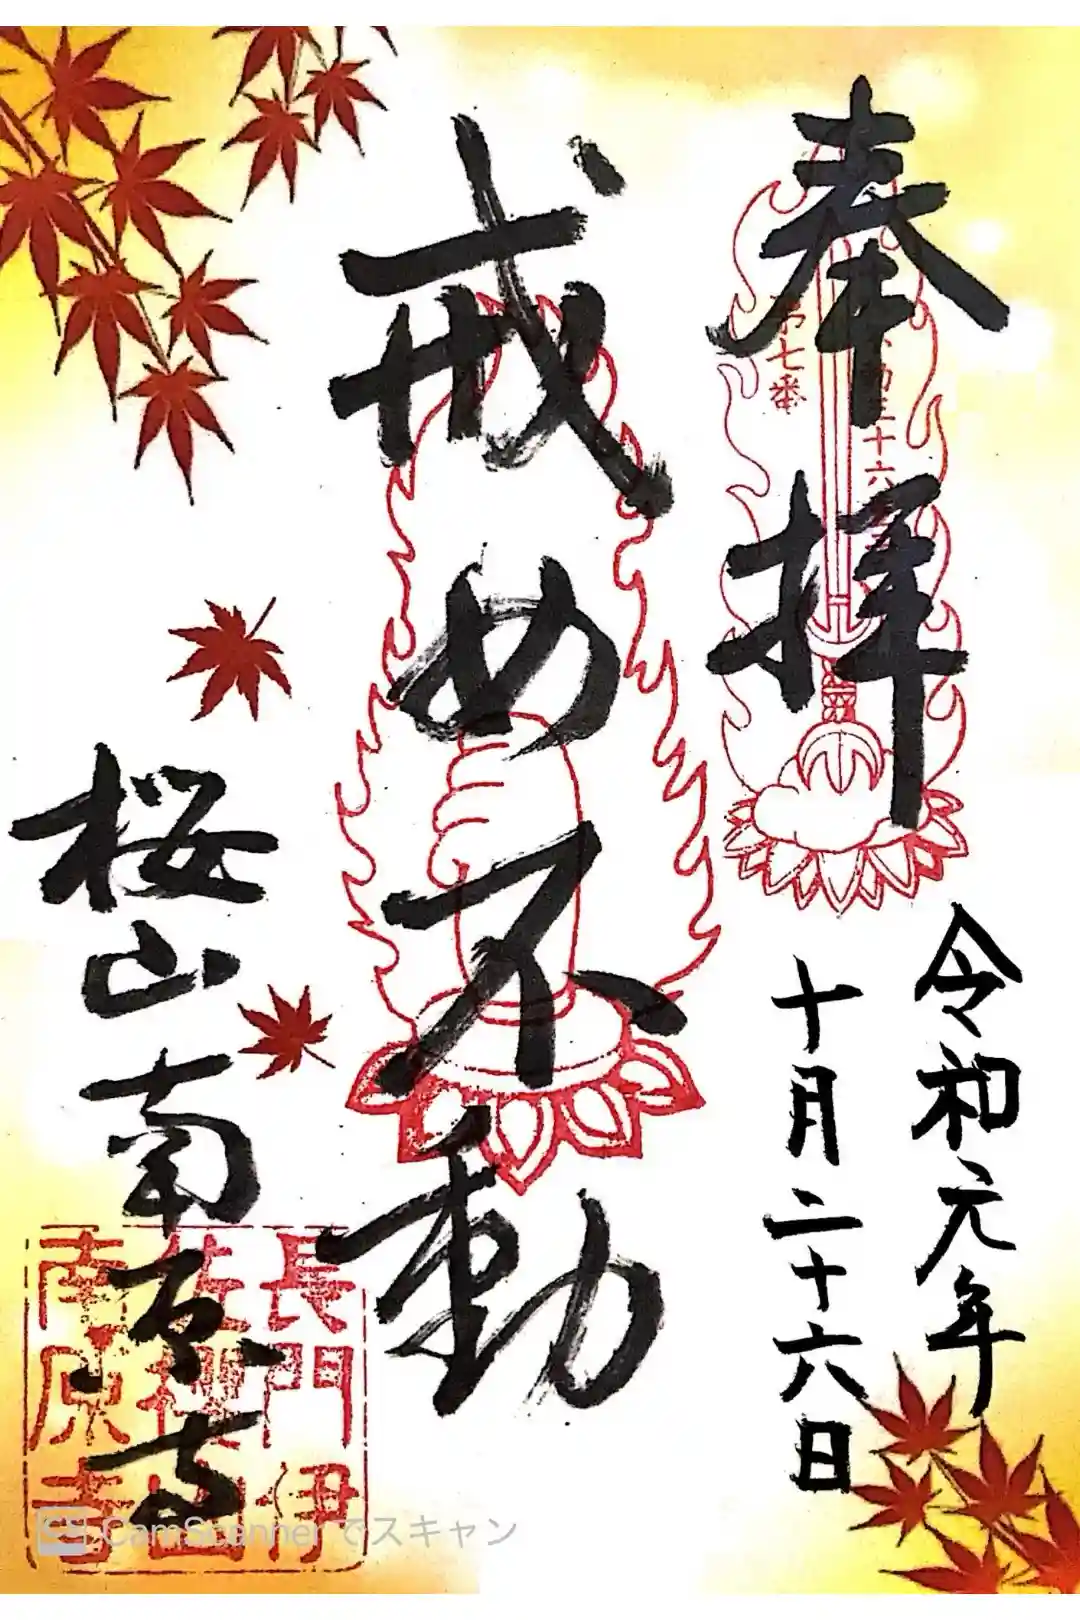 奉拝
第七番
三十六
令和元年
十月二十六日
戒め不動
桜山南原寺
長門伊
佐桜山
南原寺
CS CamScanner でスキャン